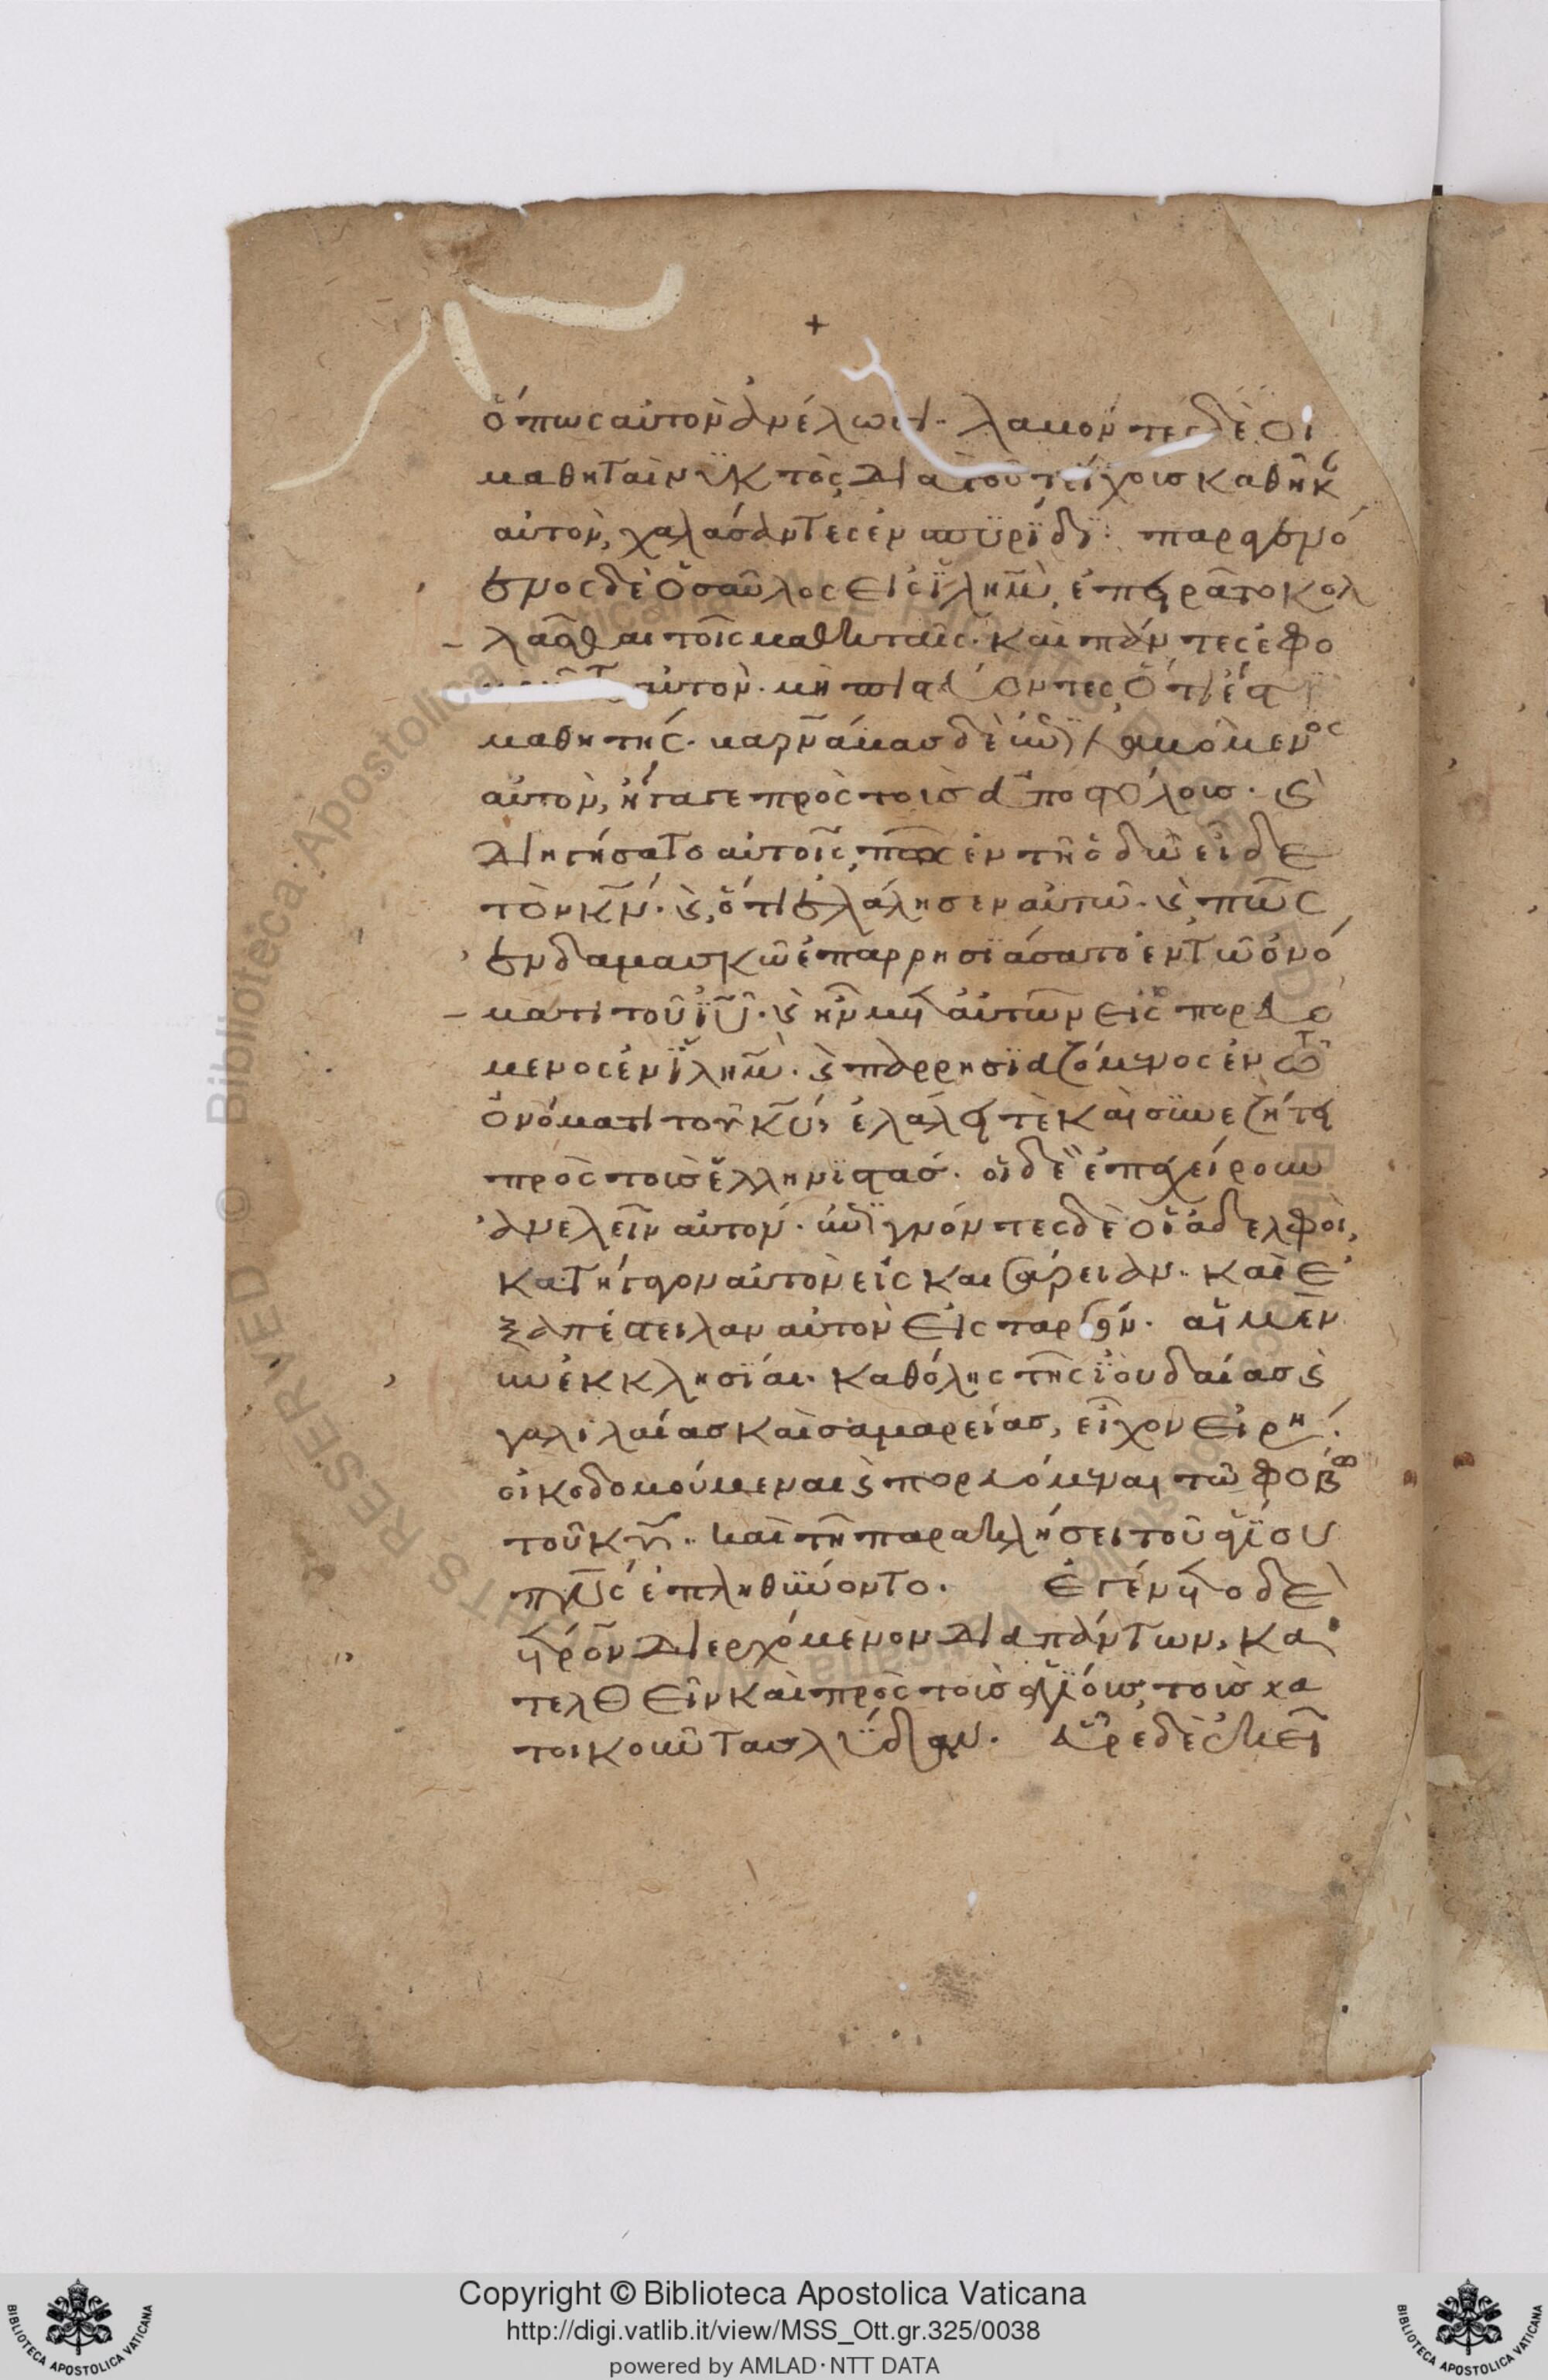 +
ὅπως αὐτὸν ἀνέλωσι· λαβόντες δὲ οἱ
μαθηταὶ νϋκτὸς, διὰ τοῦ τείχους καθῆκ
αὐτὸν, χαλάσαντες ἐν σπϋρΐδϊ· παραγενό
ενος δὲ ὁ σαῦλος εἰς ϊλημ, ἐπειρᾶτο κολ
λᾶσθαι τοῖς μαθηταῖς· καὶ πάντες ἐφο
αὐτὸν· μὴ πιστεύοντες ὅτι ἐστϊ
μαθητής· βαρνάβας δὲ ἐπϊλαβόμενος
αὐτὸν, ἤγαγε πρὸς τοὺς ἀποστόλους· ϗ
διηγήσατο αὐτοῖς, πῶς ἐν τῆ ὁδῶ εἶδε
τὸν κν· ϗ ὅτι ἐλάλησεν αὐτῶ· ϗ πῶς
ἐν δαμασκῶ ἐπαρρησϊάσατο ἐν τῶ ὀνό
ματι τοῦ ϊυ· ϗ ἦν μετ αὐτῶν εἰσπορευό
μενος ἐν ϊλημ· ϗ παρρησϊαζόμενος ἐν τῶ
ὀνόματι τοῦ κυ, ἐλάλει τὲ καὶ συνεζήτει
πρὸς τοὺς ἑλληνϊστάς· οἱ δὲ ἐπεχείρουν
ἀνελεῖν αὐτόν· ἐπϊγνόντες δὲ οἱ ἀδελφοὶ,
κατήγαγον αὐτὸν εἰς καισάρειαν· καὶ ἐ
ξαπέστειλαν αὐτὸν εἰς ταρσόν· αἱ μὲν
οὖν ἐκκλησϊαι· καθόλης τῆς ϊουδαίας ϗ
γαλιλαίας καὶ σαμαρείας, εἶχον εἰρην·
οἰκοδομούμεναι ϗ πορευόμεναι τῶ φόβω
τοῦ κυ· καὶ τῆ παρακλήσει τοῦ ἁγϊου
πνς ἐπληθύνοντο· Ἐγένετο δὲ
πέτρον διερχόμενον διὰ πάντων, κα
τελθεῖν καὶ πρὸς τοὺς ἁγϊους τοὺς κα
τοικοῦντας λϋδδαν· εὗρε δὲ ἐκεῖ
Copyright © Biblioteca Apostolica Vaticana
http://digi.vatlib.it/view/MSS_Ott.gr.325/0038
powered by AMLAD·NTT DATA